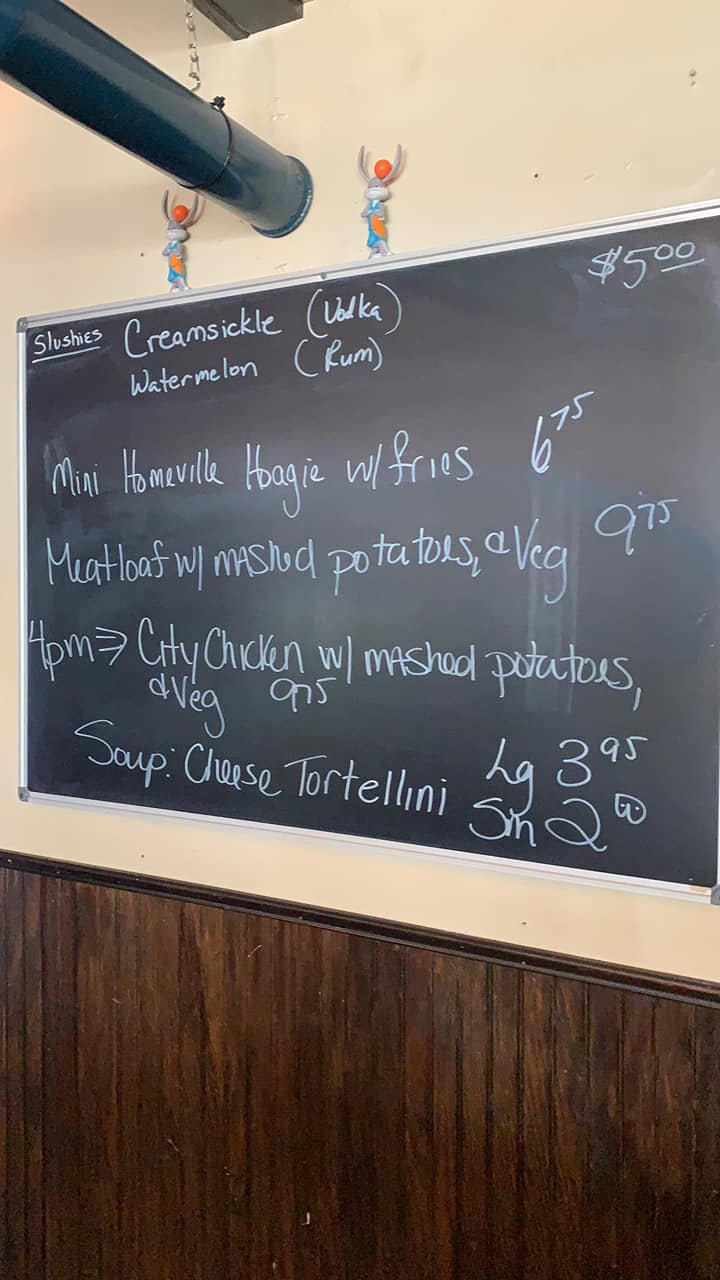 Slushies Creamsickle (Vodka) $5.00
Watermelon (Rum)
Mini Homeville Hoagie w/ fries 6.75
Meatloaf w/ mashed potatoes, & Veg 9.75
4pm ⇒ City Chicken w/ mashed potatoes,
& Veg 9.75
Soup: Cheese Tortellini Lg 3.95
Sm 2.00